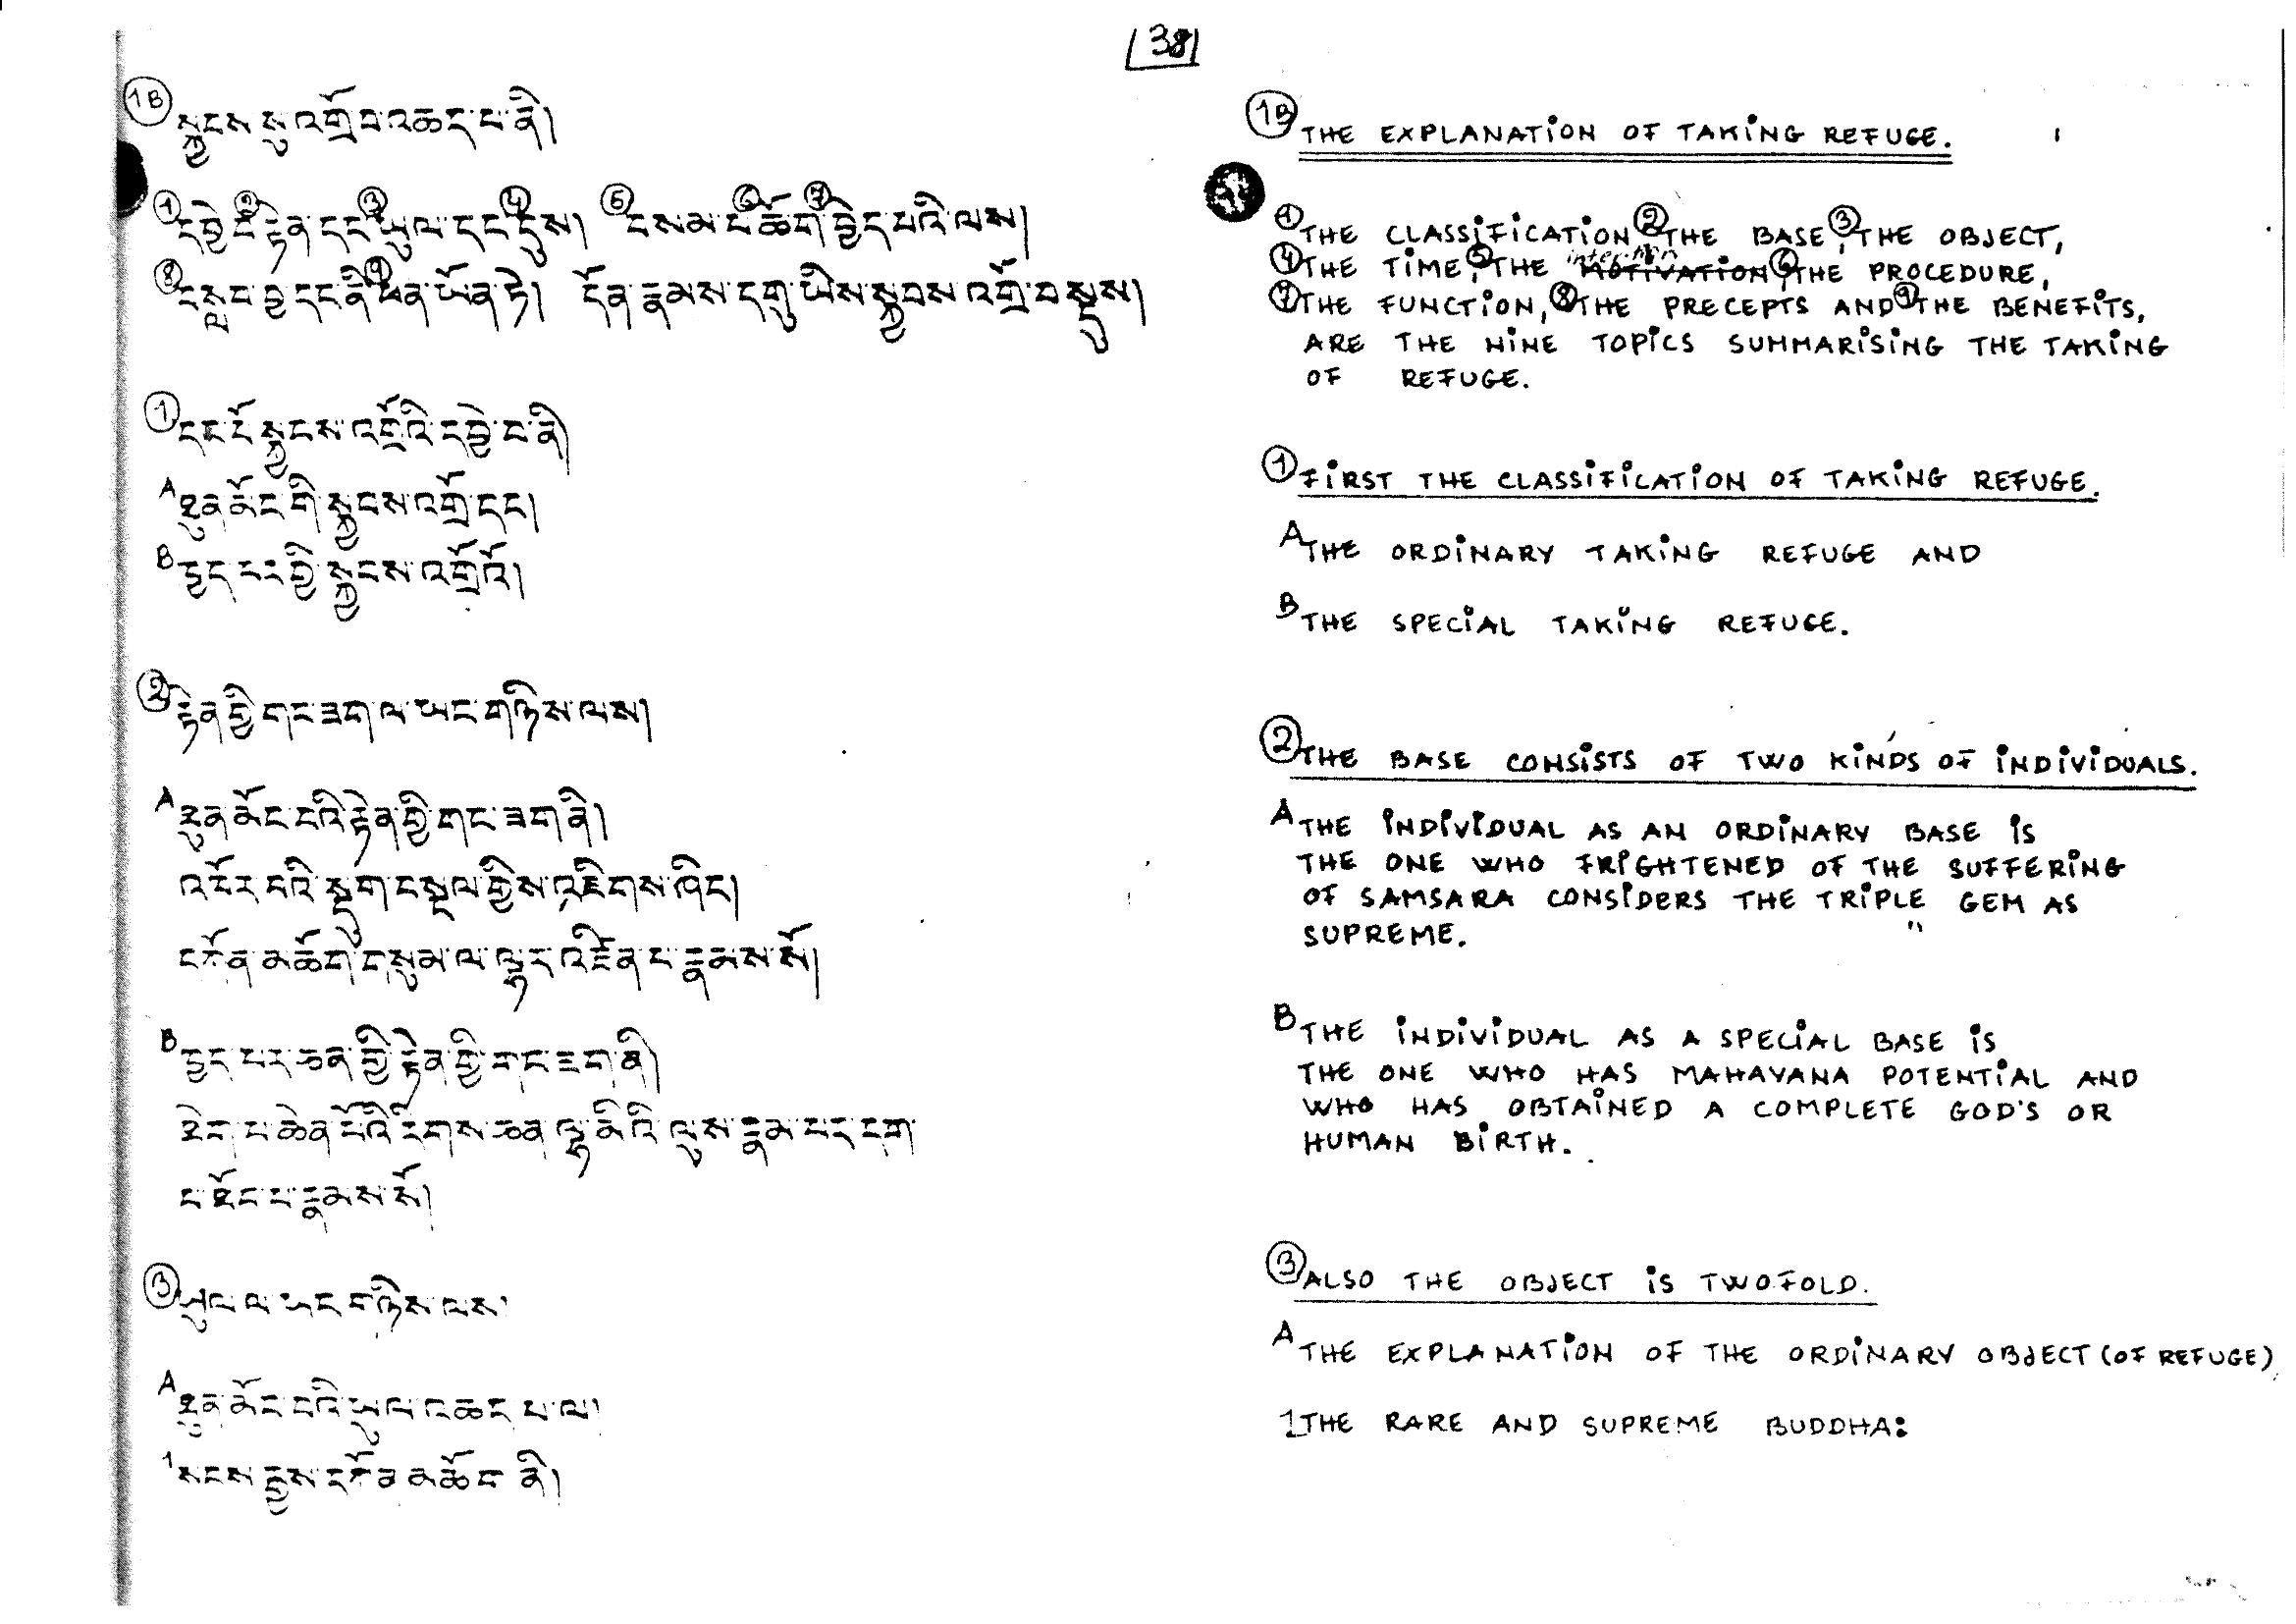 38
1B སྐྱབས་སུ་འགྲོ་བ་འཆད་པ་ནི།
① དབྱེ་བ ② རྟེན་དང ③ ཡུལ་དང ④ དུས། ⑤ བསམ་པ ⑥ ཆོག ⑦ བྱེད་པའི་ལས།
⑧ བསླབ་བྱ་དང་ནི ⑨ ཕན་ཡོན་ཏེ། དོན་རྣམས་དགུ་ཡིས་སྐྱབས་འགྲོ་བསྡུས།
① དང་པོ་སྐྱབས་འགྲོའི་དབྱེ་བ་ནི།
A ཐུན་མོང་གི་སྐྱབས་འགྲོ་དང།
B ཁྱད་པར་གྱི་སྐྱབས་འགྲོའོ།
② རྟེན་གྱི་གང་ཟག་ལ་ཡང་གཉིས་ལས།
A ཐུན་མོང་བའི་རྟེན་གྱི་གང་ཟག་ནི།
འཁོར་བའི་སྡུག་བསྔལ་གྱིས་འཇིགས་ཤིང།
དཀོན་མཆོག་གསུམ་ལ་ལྷར་འཛིན་པ་རྣམས་སོ།
B ཁྱད་པར་ཅན་གྱི་རྟེན་གྱི་གང་ཟག་ནི།
ཐེག་པ་ཆེན་པོའི་རིགས་ཅན་ལྷ་མིའི་ལུས་རྣམ་པར་དག
པ་ཐོབ་པ་རྣམས་སོ།
③ ཡུལ་ལ་ཡང་གཉིས་ལས།
A ཐུན་མོང་བའི་ཡུལ་འཆད་པ་ལ།
1 སངས་རྒྱས་དཀོན་མཆོག་ནི།
1B THE EXPLANATION OF TAKING REFUGE.
① THE CLASSIFICATION, ② THE BASE, ③ THE OBJECT,
④ THE TIME, ⑤ THE MOTIVATION, ⑥ THE PROCEDURE,
⑦ THE FUNCTION, ⑧ THE PRECEPTS AND ⑨ THE BENEFITS,
ARE THE NINE TOPICS SUMMARISING THE TAKING
OF REFUGE.
① FIRST THE CLASSIFICATION OF TAKING REFUGE.
A THE ORDINARY TAKING REFUGE AND
B THE SPECIAL TAKING REFUGE.
② THE BASE CONSISTS OF TWO KINDS OF INDIVIDUALS.
A THE INDIVIDUAL AS AN ORDINARY BASE IS
THE ONE WHO FRIGHTENED OF THE SUFFERING
OF SAMSARA CONSIDERS THE TRIPLE GEM AS
SUPREME.
B THE INDIVIDUAL AS A SPECIAL BASE IS
THE ONE WHO HAS MAHAYANA POTENTIAL AND
WHO HAS OBTAINED A COMPLETE GOD'S OR
HUMAN BIRTH.
③ ALSO THE OBJECT IS TWOFOLD.
A THE EXPLANATION OF THE ORDINARY OBJECT (OF REFUGE)
1 THE RARE AND SUPREME BUDDHA: